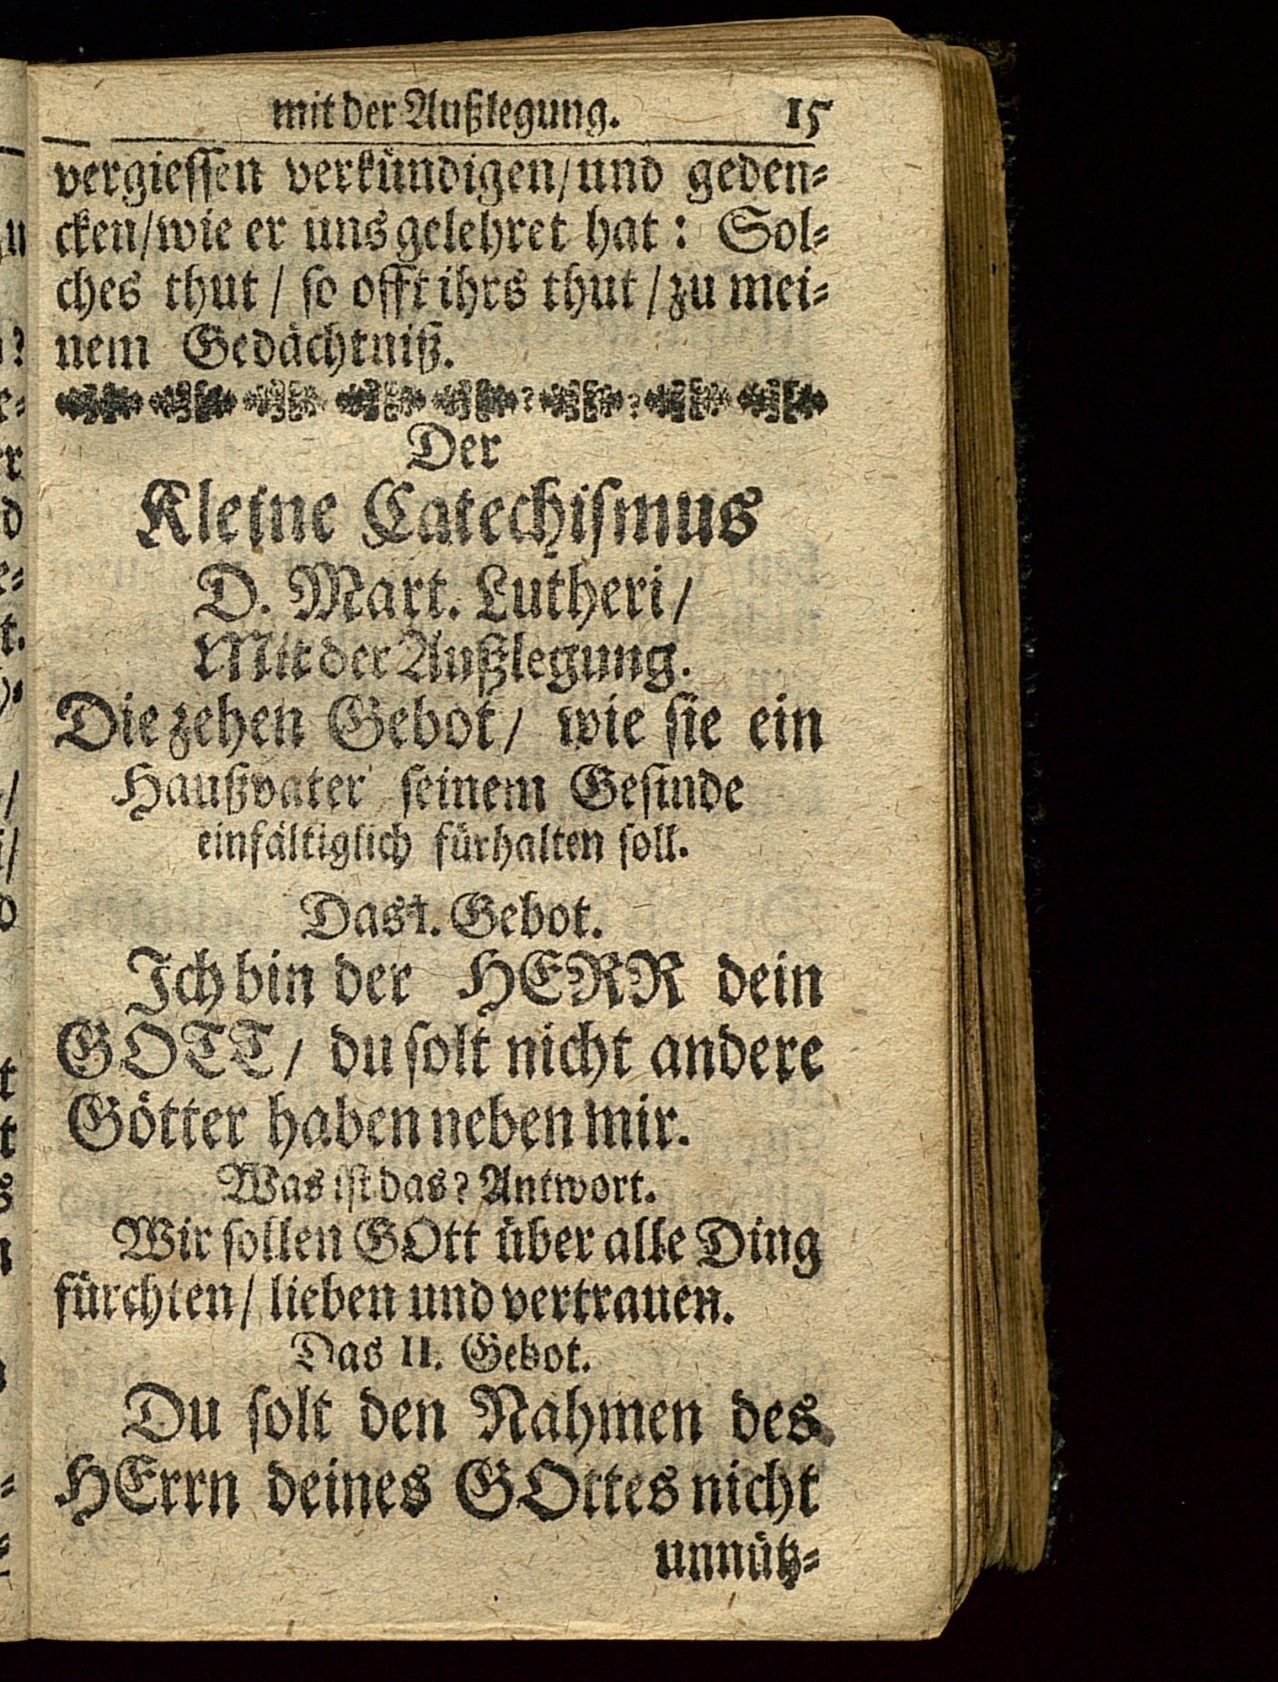 mit der Außlegung. 15
vergiessen verkündigen/und geden-
cken/wie er uns gelehret hat: Sol-
ches thut / so offt ihrs thut / zu mei-
nem Gedächtniß.
Der
Kleine Catechismus
D. Mart. Lutheri/
Mit der Außlegung.
Die zehen Gebot/ wie sie ein
Haußvater seinem Gesinde
einfältiglich fürhalten soll.
Das I. Gebot.
Ich bin der HERR dein
GOTT/ du solt nicht andere
Götter haben neben mir.
Was ist das? Antwort.
Wir sollen GOtt über alle Ding
fürchten/ lieben und vertrauen.
Das II. Gebot.
Du solt den Nahmen des
HErrn deines GOttes nicht
unnütz-